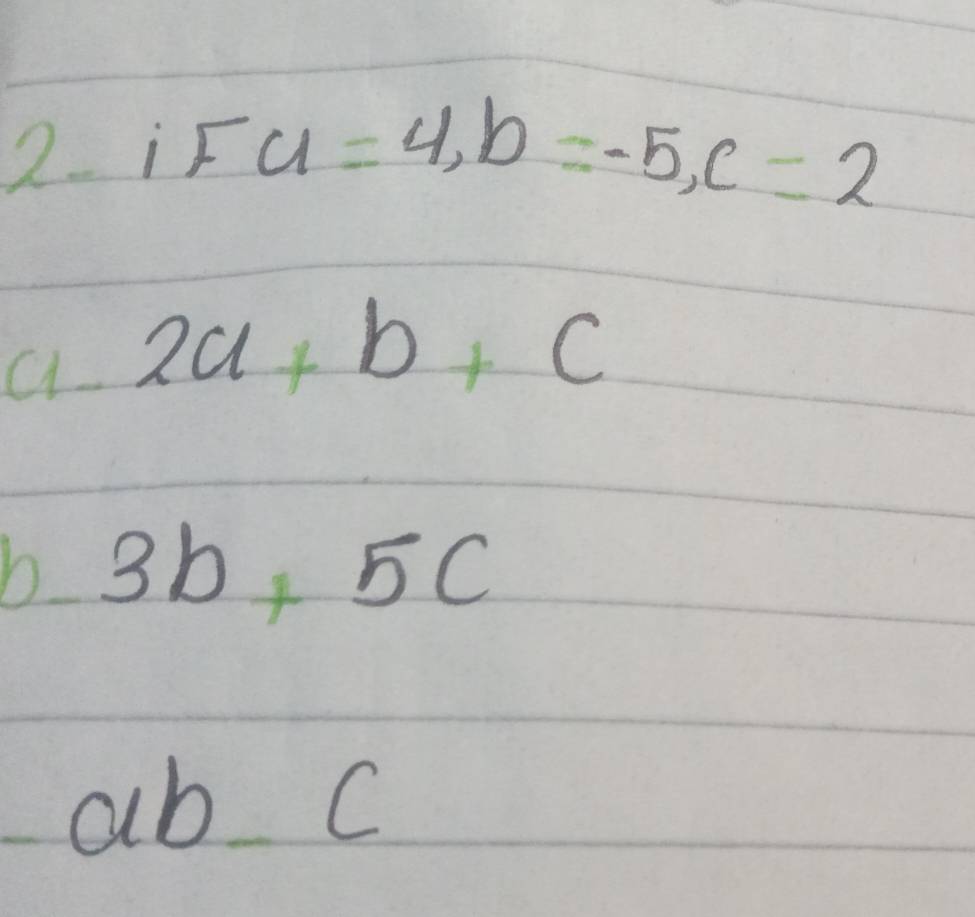 2- iF a = 4, b = -5, c = 2
a- 2a + b + C
b- 3b + 5C
- ab - C